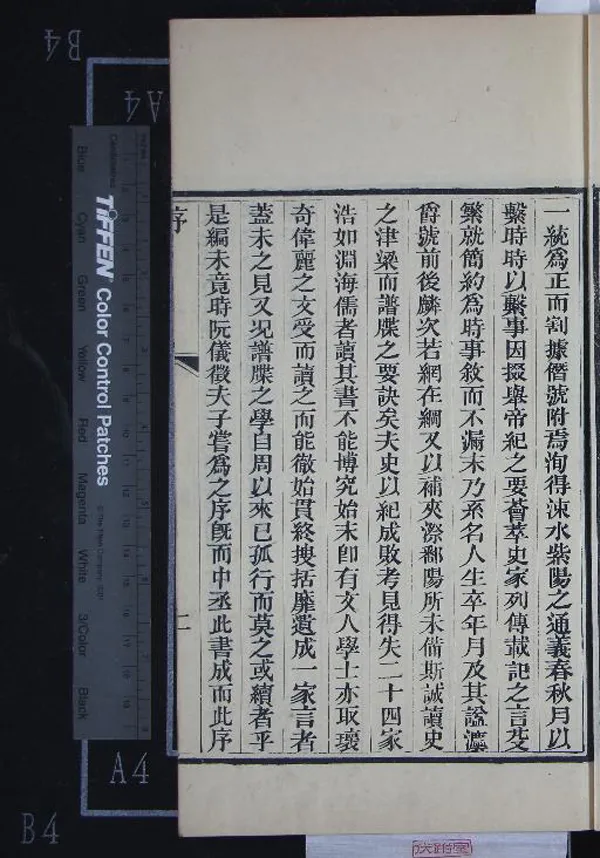 一統爲正而割據僭號附焉洵得涑水紫陽之通義春秋月以
繫時時以繫事因掇舉帝紀之要薈萃史家列傳載記之言芟
繁就簡約爲時事敘而不漏末乃系名人生卒年月及其諡灋
爵號前後麟次若網在綱又以補夾漈鄱陽所未備斯誠讀史
之津梁而譜牒之要訣矣夫史以紀成敗考見得失二十四家
浩如淵海儒者讀其書不能博究始末卽有文人學士亦取瓌
奇偉麗之文受而讀之而能徹始貫終搜括靡遺成一家言者
蓋未之見又況譜牒之學自周以來已孤行而莫之或續者乎
是編未竟時阮儀徵夫子嘗爲之序旣而中丞此書成而此序
序
二
TIFFEN Color Control Patches
Blue
Cyan
Green
Yellow
Red
Magenta
White
3/Color
Black
B4
A4
A4
B4